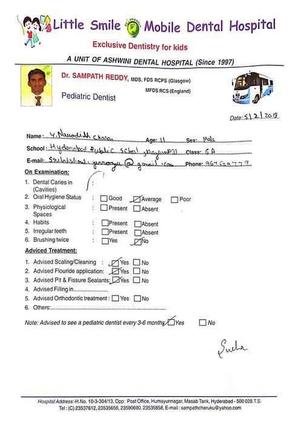 Little Smile Mobile Dental Hospital
Exclusive Dentistry for kids
A UNIT OF ASHWINI DENTAL HOSPITAL (Since 1997)
Dr. SAMPATH REDDY, MDS, FDS RCPS (Glasgow)
MFDS RCS (England)
Pediatric Dentist
Date: 5/2/2018
Name: Age: 11 Sex: Male
School: Hyderabad Public School, Class: 6A
E-mail: @gmail.com Phone:
On Examination:
1. Dental Caries in (Cavities)
2. Oral Hygiene Status : Good Average Poor
3. Physiological Spaces : Present Absent
4. Habits : Present Absent
5. Irregular teeth : Present Absent
6. Brushing twice : Yes No
Adviced Treatment:
1. Advised Scaling/Cleaning : Yes No
2. Advised Flouride application: Yes No
3. Advised Pit & Fissure Sealants: Yes No
4. Advised Filling in
5. Advised Orthodontic treatment : Yes No
6. Others:
Note: Advised to see a pediatric dentist every 3-6 months Yes No
Hospital Address: H.No. 10-3-304/13, Opp. Post Office, Humayunnagar, Masab Tank, Hyderabad - 500 028 T.S.
Tel: (C) 23537612, 23535656, 23590680, 23535858, E-mail : sampathcheruku@yahoo.com